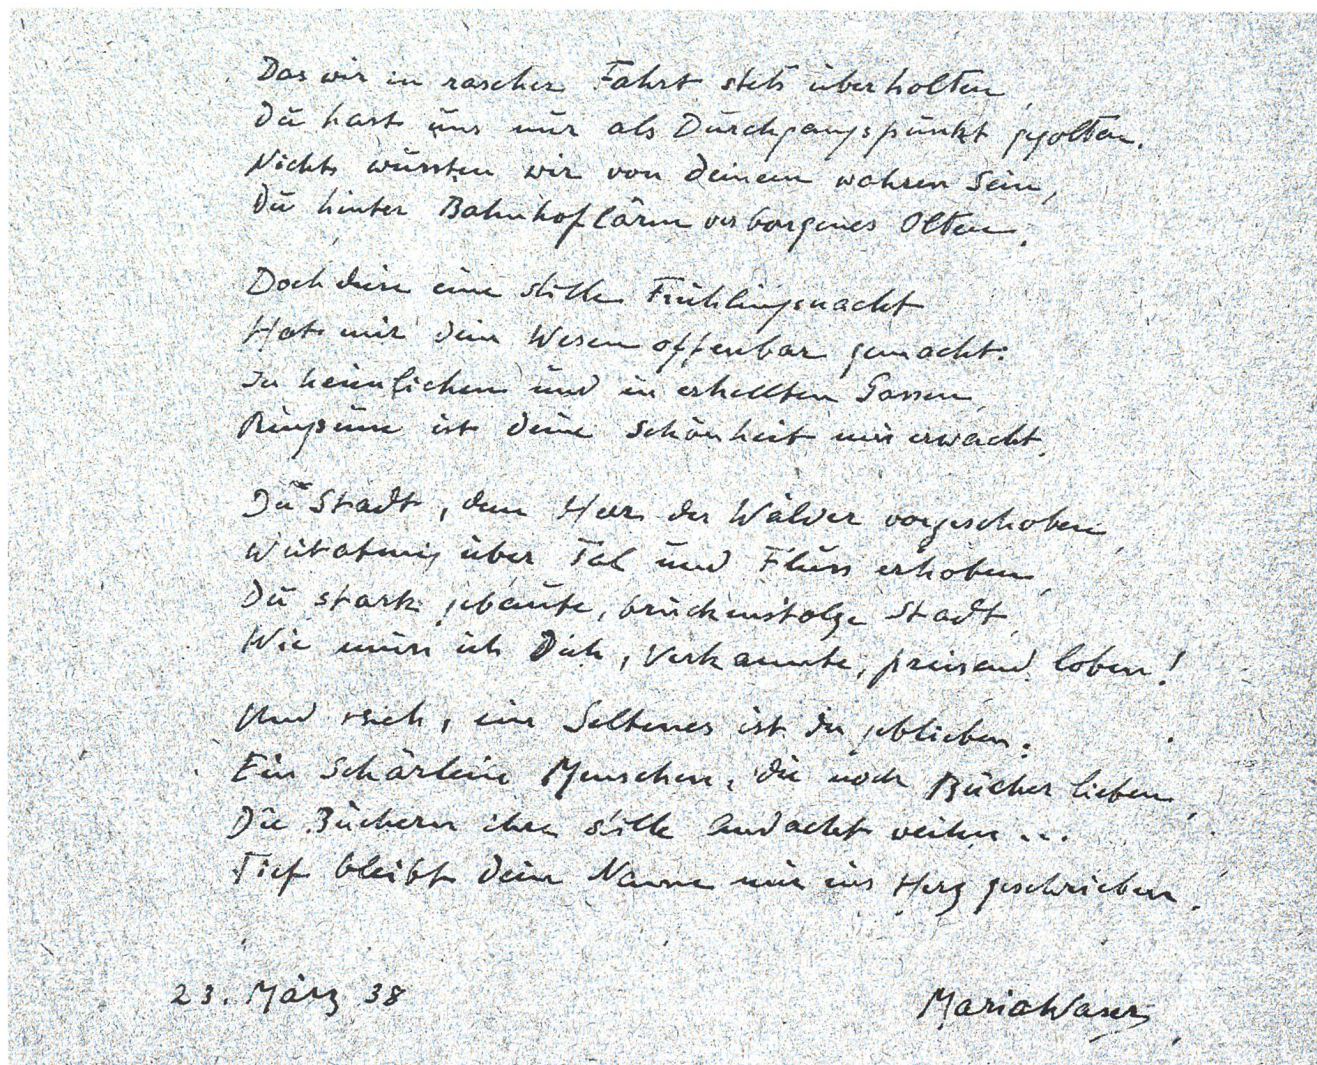 Das wir in rascher Fahrt stets überholten,
Du hast uns nur als Durchgangspunkt gegolten.
Nichts wussten wir von deinem wahren Sein,
Du hinter Bahnhoflärm verborgenes Olten.
Doch diese eine stille Frühlingsnacht
Hat mir dein Wesen offenbar gemacht:
In heimlichen und in erhellten Gassen,
Ringsum ist deine Schönheit mir erwacht.
Du Stadt, dem Heer der Wälder vorgeschoben,
Weitatmig über Tal und Fluss erhoben,
Du stark gebaute, brückenstolze Stadt,
Wie muss ich Dich, Verkannte, preisend loben!
Und reich, ein Seltenes ist dir geblieben:
Ein Schärlein Menschen, die noch Bücher lieben,
Die Büchern ihre stille Andacht weihn ...
Tief bleibt dein Name mir ins Herz geschrieben.
23. März 38
Maria Waser